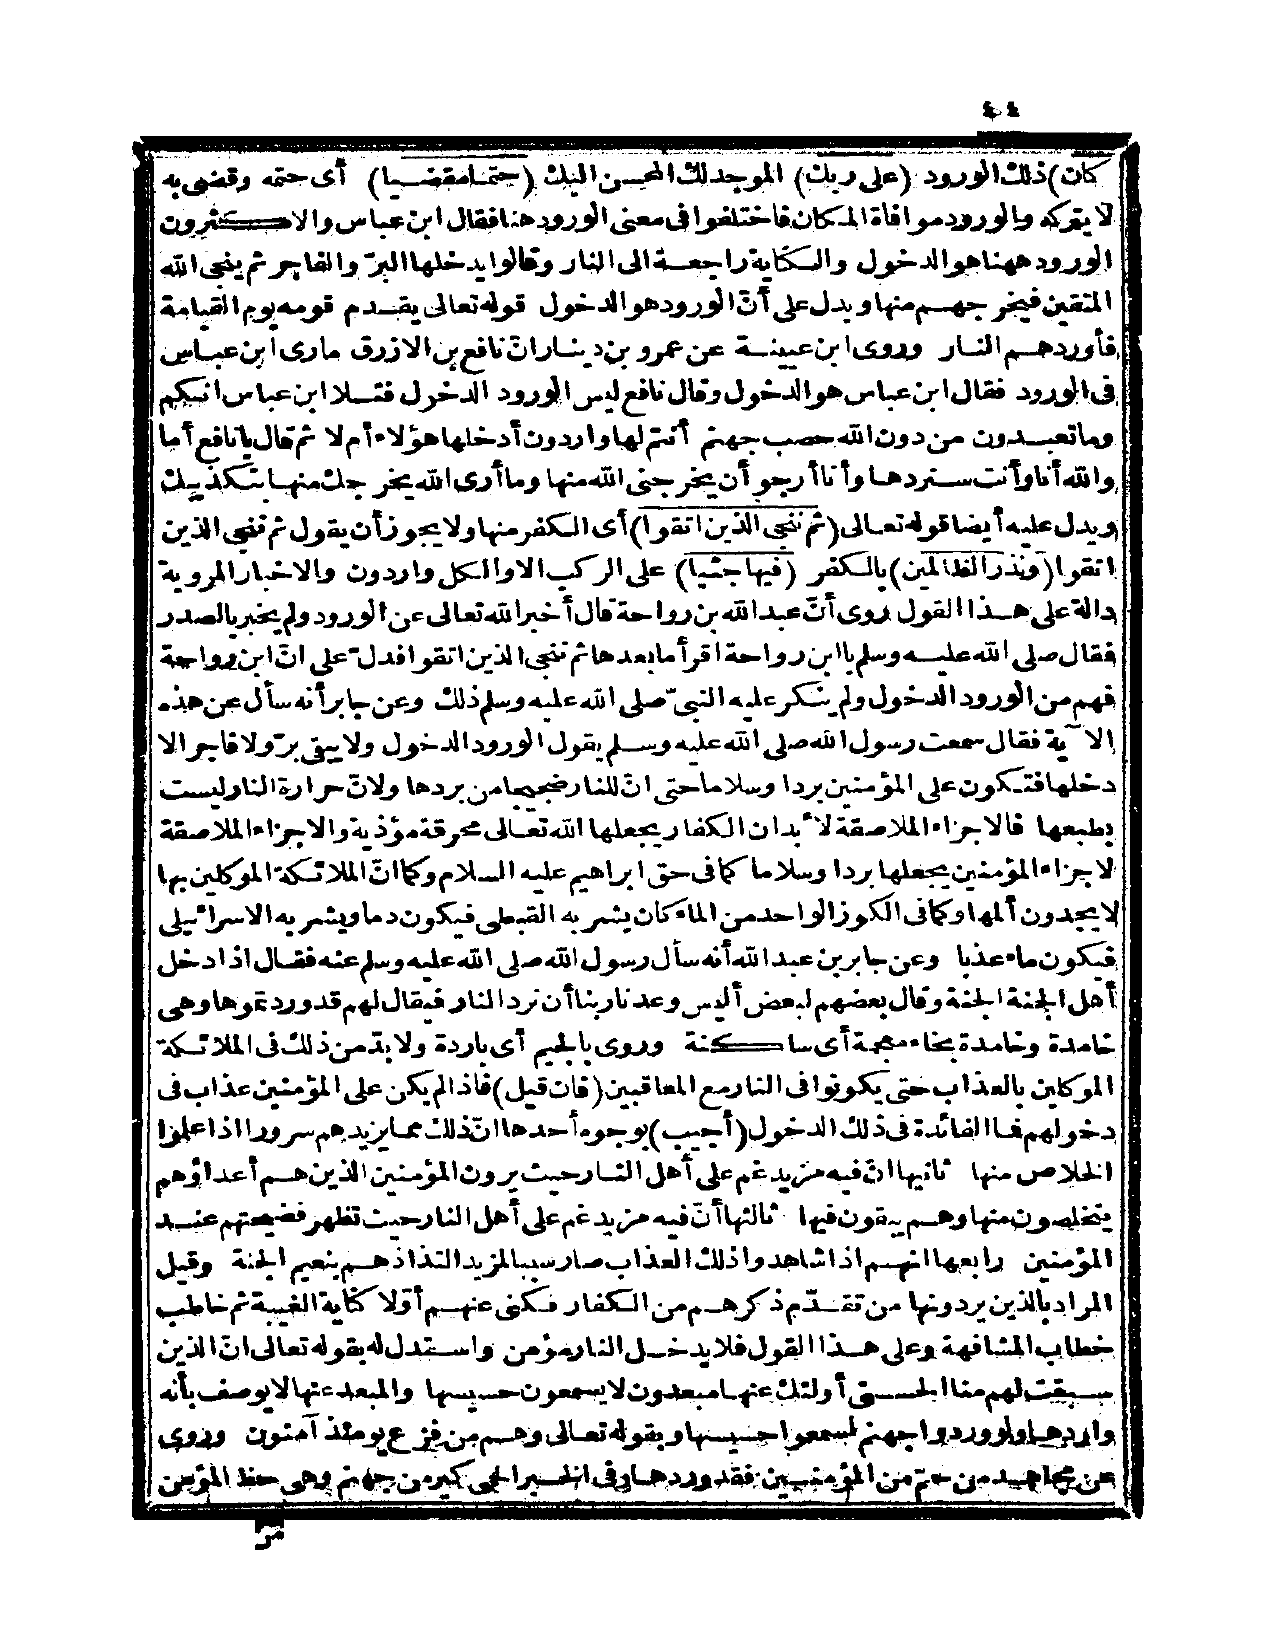 ٤٤
كان) ذلك الورود (على ربك) الموجد لك المحسن اليك (حتما مقضيا) أى حتمه وقضى به
لا يتركه والورود موافاة المكان فاختلفوا فى معنى الورود هنا فقال ابن عباس والاكثرون
الورود ههنا هو الدخول والكناية راجعة الى النار وقالوا يدخلها البرّ والفاجر ثم ينجى الله
المتقين فيخرجهم منها ويدل على أنّ الورود هو الدخول قوله تعالى يقدم قومه يوم القيامة
فأوردهم النار وروى ابن عيينة عن عمرو بن دينار انّ نافع بن الازرق مارى ابن عباس
فى الورود فقال ابن عباس هو الدخول وقال نافع ليس الورود الدخول فتلا ابن عباس انكم
وما تعبدون من دون الله حصب جهنم أنتم لها واردون أدخلها هؤلاء أم لا ثم قال يا نافع أما
والله أنا وأنت سنردها وأنا أرجو أن يخرجنى الله منها وما أرى الله يخرجك منها بتكذيبك
ويدل عليه أيضا قوله تعالى (ثم ننجى الذين اتقوا) أى الكفر منها ولا يجوز أن يقول ثم ننجى الذين
اتقوا (ونذر الظالمين) بالكفر (فيها جثيا) على الركب الا والكل واردون والاخبار المروية
دالة على هذا القول روى أنّ عبد الله بن رواحة قال أخبر الله تعالى عن الورود ولم يخبر بالصدر
فقال صلى الله عليه وسلم يا ابن رواحة اقرأ ما بعدها ثم ننجى الذين اتقوا فدل على انّ ابن رواحة
فهم من الورود الدخول ولم ينكر عليه النبىّ صلى الله عليه وسلم ذلك وعن جابر أنه سأل عن هذه
الآية فقال سمعت رسول الله صلى الله عليه وسلم يقول الورود الدخول ولا يبقى برّ ولا فاجر الا
دخلها فتكون على المؤمنين بردا وسلاما حتى انّ للنار ضجيجا من بردها ولانّ حرارة النار ليست
بطبعها فالاجزاء الملاصقة لابدان الكفار يجعلها الله تعالى محرقة مؤذية والاجزاء الملاصقة
لاجزاء المؤمنين يجعلها بردا وسلاما كما فى حق ابراهيم عليه السلام وكما انّ الملائكة الموكلين بها
لا يجدون ألمها وكما فى الكوز الواحد من الماء كان يشربه القبطى فيكون دما ويشربه الاسرائيلى
فيكون ماء عذبا وعن جابر بن عبد الله أنه سأل رسول الله صلى الله عليه وسلم عنه فقال اذا دخل
أهل الجنة الجنة وقال بعضهم لبعض أليس وعدنا ربنا أن نرد النار فيقال لهم قد وردتموها وهى
خامدة وخامدة بخاء معجمة أى ساكنة وروى بالجيم أى باردة ولا بدّ من ذلك فى الملائكة
الموكلين بالعذاب حتى يكونوا فى النار مع المعاقبين (فان قيل) فاذا لم يكن على المؤمنين عذاب فى
دخولهم فما الفائدة فى ذلك الدخول (أجيب) بوجوه أحدها انّ ذلك مما يزيدهم سرورا اذا علموا
الخلاص منها ثانيها انّ فيه مزيد غم على أهل النار حيث يرون المؤمنين الذين هم أعداؤهم
يتخلصون منها وهم يبقون فيها ثالثها أنّ فيه مزيد غم على أهل النار حيث تظهر فضيحتهم عند
المؤمنين رابعها انهم اذا شاهدوا ذلك العذاب صار سببا لمزيد التذاذهم بنعيم الجنة وقيل
المراد بالذين يردونها من تقدّم ذكرهم من الكفار فكنى عنهم أوّلا كناية الغيبة ثم خاطب
خطاب المشافهة وعلى هذا القول فلا يدخل النار مؤمن واستدل له بقوله تعالى انّ الذين
سبقت لهم منا الحسنى أولئك عنها مبعدون لا يسمعون حسيسها والمبعد عنها لا يوصف بأنه
واردها ولو وردوا جهنم لسمعوا حسيسها وبقوله تعالى وهم من فزع يومئذ آمنون وروى
عن مجاهد من حمّ من المؤمنين فقد وردها وفى الخبر الحمى كير من جهنم وهى حظ المؤمن
من